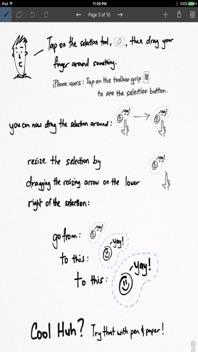 iPad
11:08 PM
Page 3 of 16
Tap on the selection tool, , then drag your
finger around something.
iPhone users: Tap on the toolbar grip
to see the selection button.
you can now drag the selection around:
yay!
yay!
resize the selection by
yay!
dragging the resizing arrow on the lower
right of the selection:
go from:
yay!
to this:
yay!
to this:
yay!
Cool Huh? Try that with pen & paper!